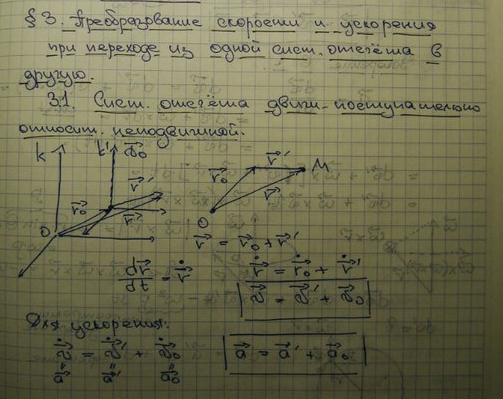 § 3. Преобразование скорости и ускорения
при переходе из одной сист. отсчёта в
другую.
3.1. Сист. отсчёта движ. поступательно
относит. неподвижной.
K K' v⃗₀
r⃗' r⃗₀ r⃗ O
r⃗' M r⃗₀ r⃗ O
r⃗ = r⃗₀ + r⃗'
dr⃗/dt = ṙ⃗ ṙ⃗ = ṙ⃗₀ + ṙ⃗'
v⃗ = v⃗' + v⃗₀
Для ускорения:
v̇⃗ = v̇⃗' + v̇⃗₀ a⃗ = a⃗' + a⃗₀
a⃗ a⃗' a⃗₀